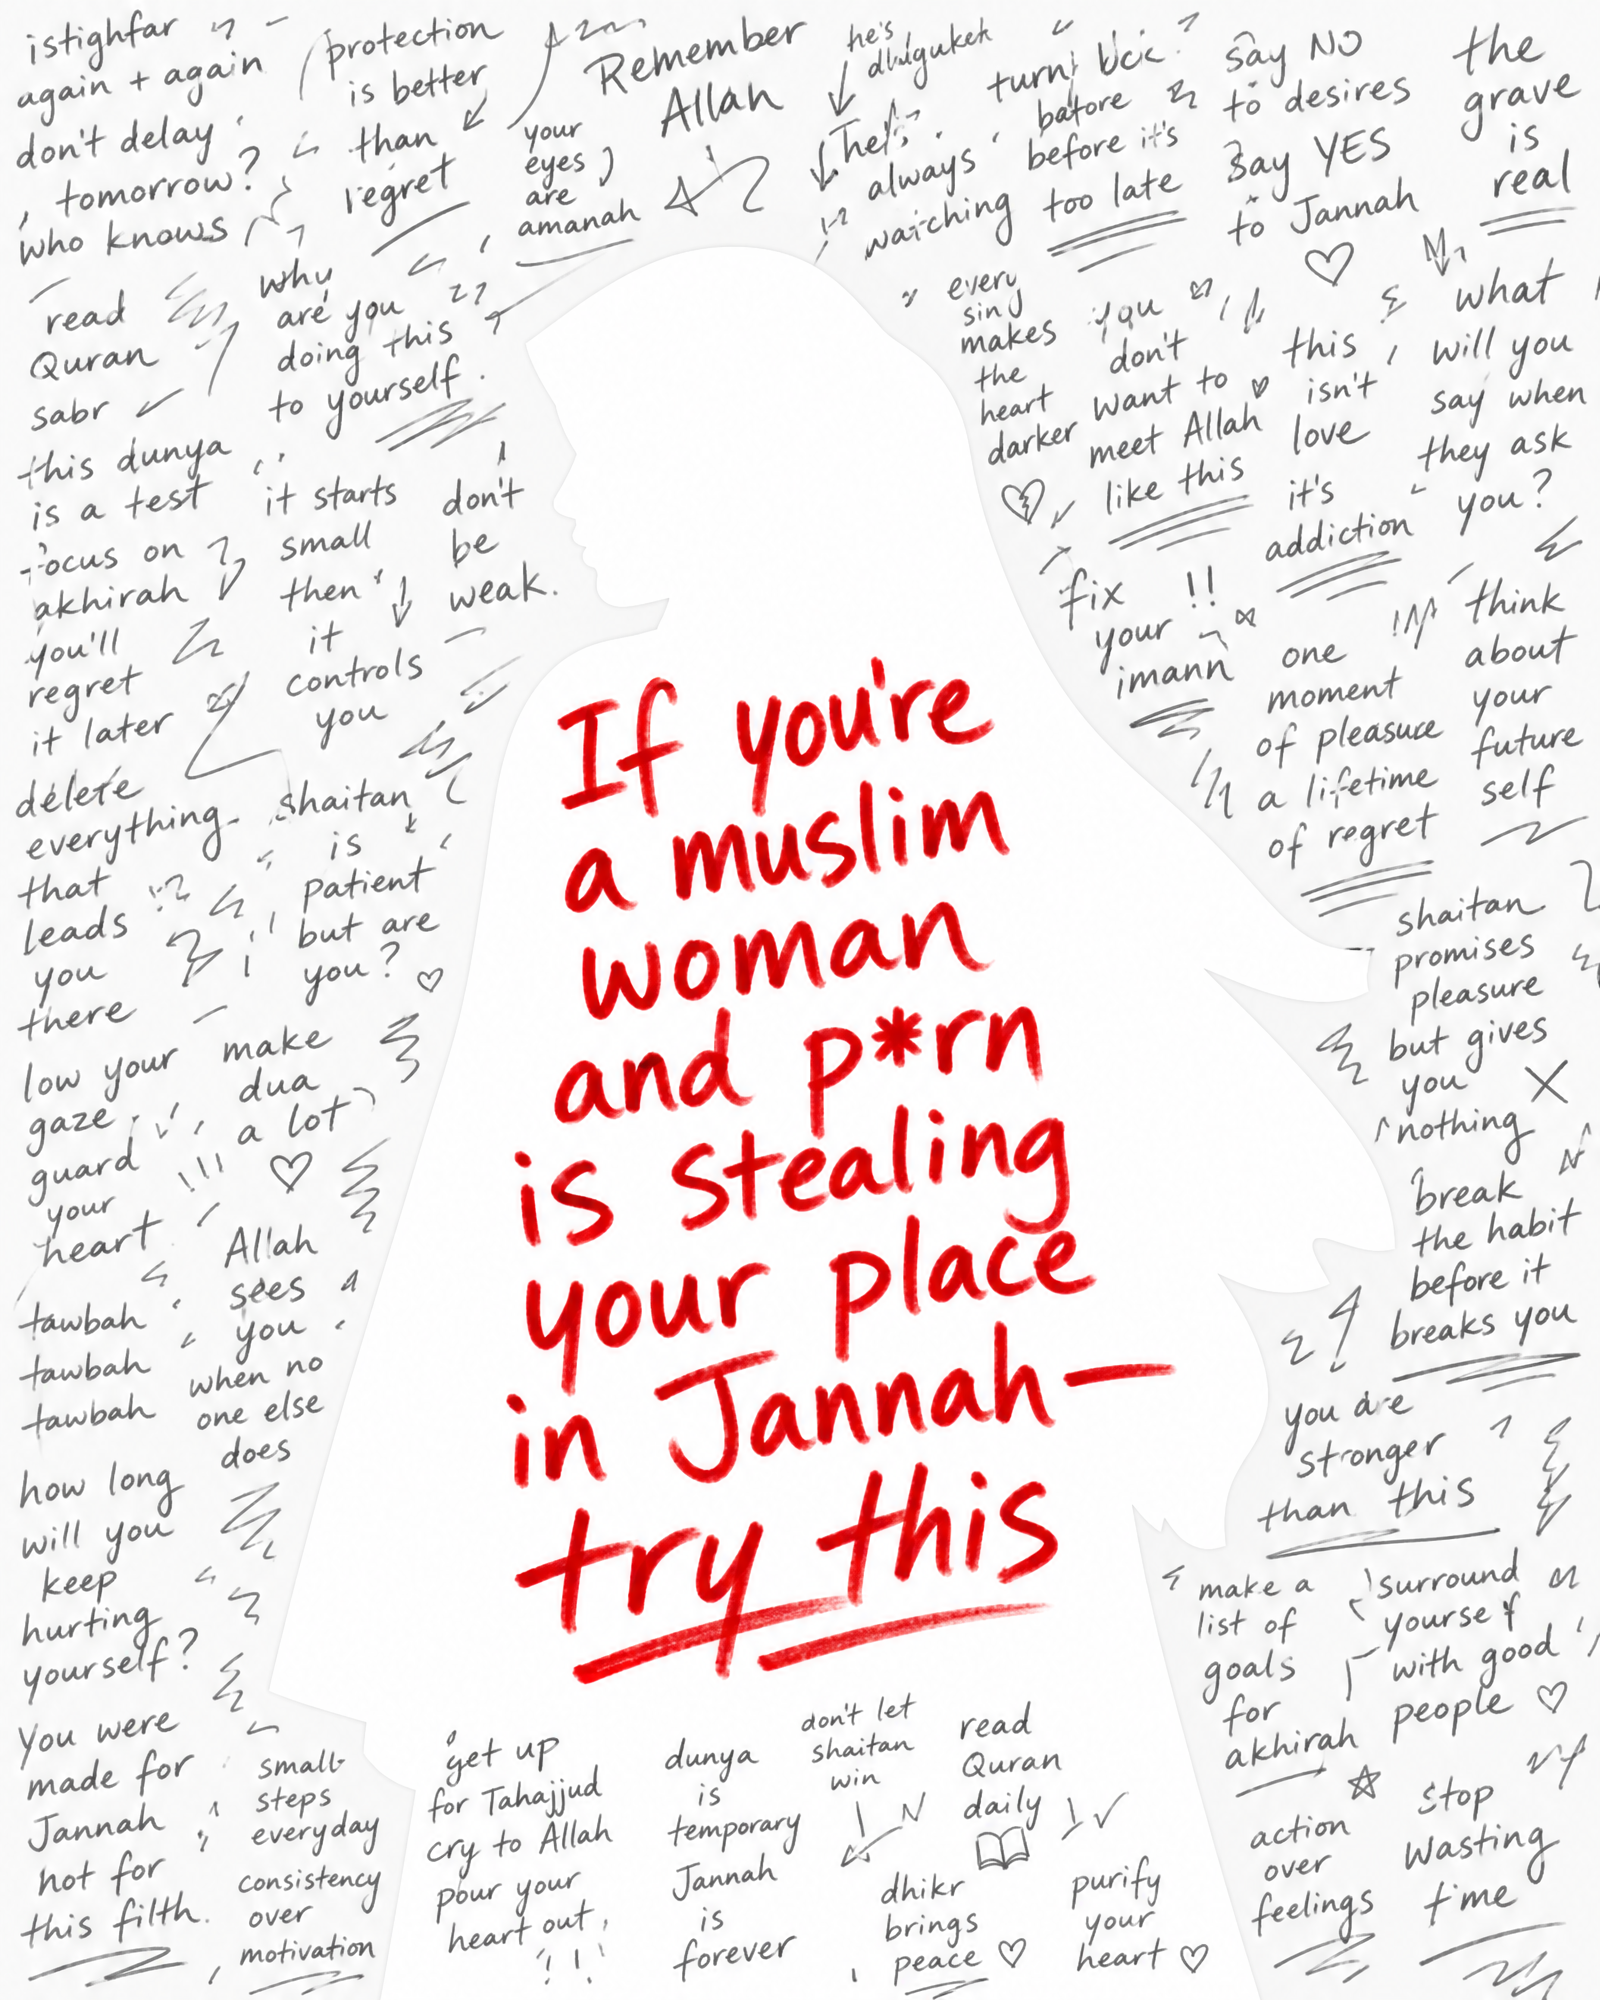 istighfar
again + again
don't delay
tomorrow?
who knows
protection
is better
than
regret
your
eyes
are
amanah
Remember
Allah
he's
always
watching
turn
before it's
too late
say NO
to desires
say YES
to Jannah
the
grave
is
real
read
Quran
sabr
why
are you
doing this
to yourself.
this dunya
is a test
focus on
akhirah
you'll
regret
it later
it starts
small
then
it
controls
you
don't
be
weak.
every
sin
makes
the
heart
darker
you
don't
want to
meet Allah
like this
this
isn't
love
it's
addiction
what
will you
say when
they ask
you?
fix !!
your
imann
one
moment
of pleasure
a lifetime
of regret
think
about
your
future
self
If you're
a muslim
woman
and p*rn
is stealing
your place
in Jannah—
try this
delete
everything
that
leads
you
there
shaitan
is
patient
but are
you?
low your
gaze
guard
your
heart
make
dua
a lot
tawbah
tawbah
tawbah
Allah
sees
you
when no
one else
does
how long
will you
keep
hurting
yourself?
You were
made for
Jannah
not for
this filth.
small
steps
everyday
consistency
over
motivation
shaitan
promises
pleasure
but gives
you
nothing
break
the habit
before it
breaks you
you are
stronger
than this
make a
list of
goals
for
akhirah
surround
yourself
with good
people
get up
for Tahajjud
cry to Allah
pour your
heart out
dunya
is
temporary
Jannah
is
forever
don't let
shaitan
win
read
Quran
daily
dhikr
brings
peace
purify
your
heart
action
over
feelings
stop
wasting
time